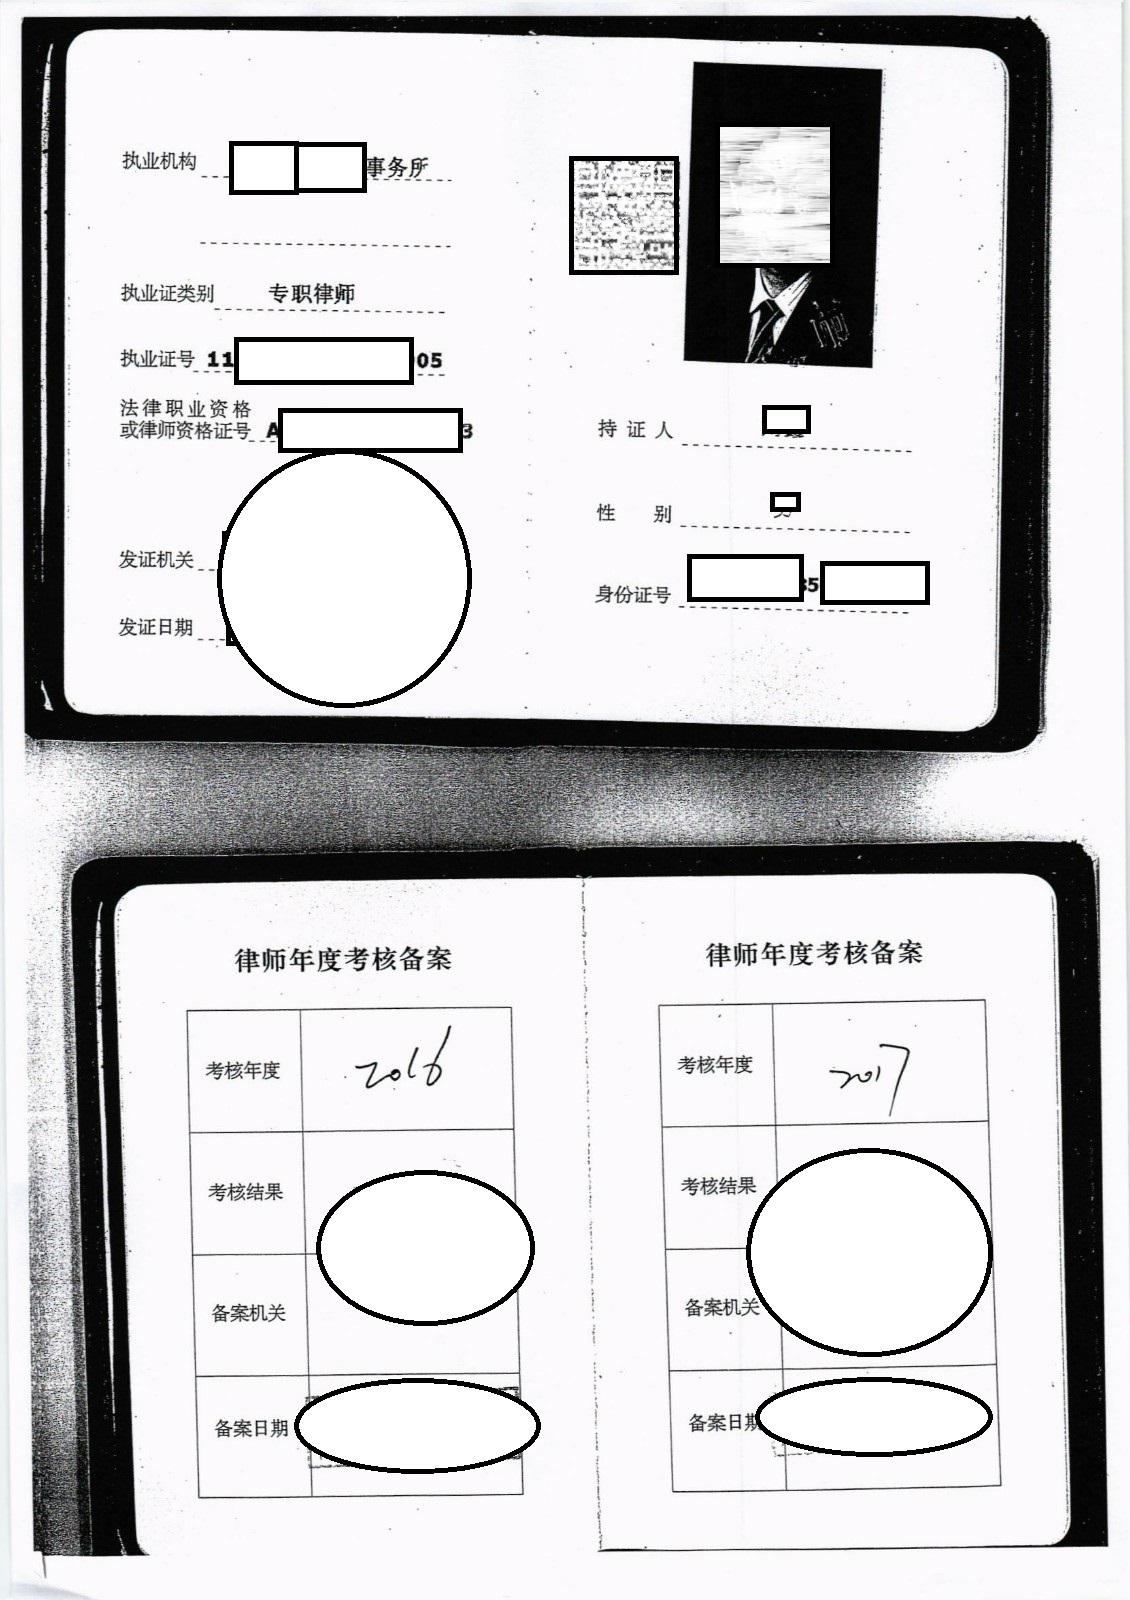 执业机构 事务所
执业证类别 专职律师
执业证号 11 05
法律职业资格
或律师资格证号 A 3
发证机关
发证日期
持证人
性别
身份证号 85
律师年度考核备案
考核年度 2016
考核结果
备案机关
备案日期
律师年度考核备案
考核年度 2017
考核结果
备案机关
备案日期